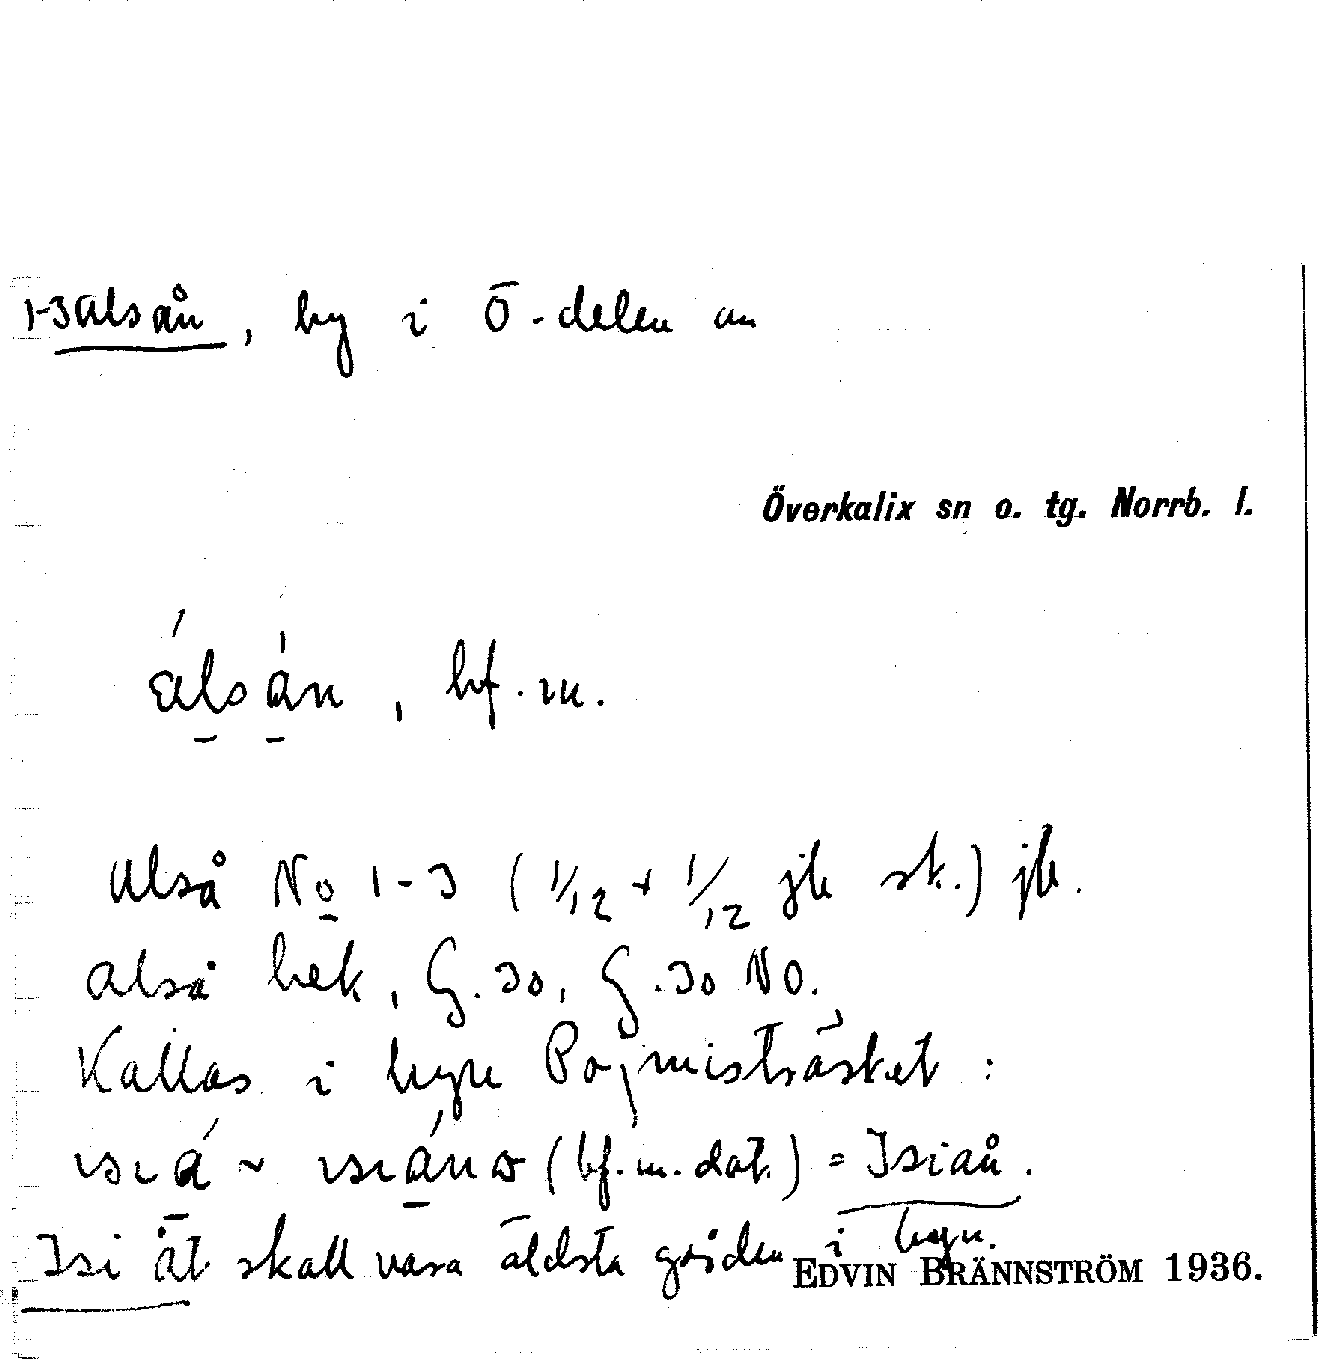 1-3 Alsån, by i Ö-delen av
Överkalix sn o. tg. Norrb. l.
álsán, bf. m.
Alså No 1-3 (1/12 + 1/12 jb sk.) jb.
Alså bek, G. 30, G. 30 NO.
Kallas i byn Pojmisträsket:
ısıá ~ ısıánω (bf. m. dat.) = Isiån.
Isi åt skall vara äldsta gården i byn.
EDVIN BRÄNNSTRÖM 1936.